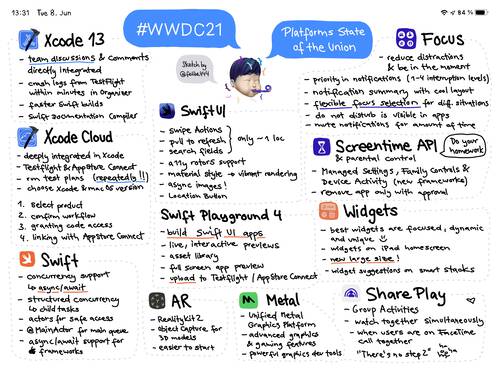 13:31 Tue 8. Jun
84 %
#WWDC21
Platforms State
of the Union
Sketch by
Xcode 13
- team discussions & comments
directly integrated
- crash logs from TestFlight
within minutes in Organizer
- faster Swift builds
- Swift Documentation Compiler
Xcode Cloud
- deeply integrated in Xcode
- Testflight & AppStore Connect
- run test plans (repeatedly!!)
- choose Xcode & macOS version
1. Select product
2. confirm workflow
3. granting code access
4. linking with AppStore Connect
Swift
- concurrency support
↳ async/await
- structured concurrency
↳ child tasks
- actors for safe access
- @MainActor for main queue
- async/await support for
frameworks
SwiftUI
- swipe Actions
- pull to refresh
- search fields
only ~1 loc
- a11y rotors support
- material style → vibrant rendering
- async images!
- Location Button
Swift Playground 4
- build Swift UI apps
- live, interactive previews
- asset library
- full screen app preview
- upload to Testflight / AppStore Connect
AR
- RealityKit 2
- Object Capture for
3D models
- easier to start
Metal
- Unified Metal
Graphics Platform
- advanced graphics
& gaming features
- powerful graphics dev tools
Focus
- reduce distractions
& be in the moment
- priority in notifications (1-4 interruption levels)
- notification summary with cool layout
- flexible focus selection for diff. situations
- do not disturb is visible in apps
- mute notifications for amount of time
Screentime API
& parental control
Do your
homework
- Managed Settings, Family Controls &
Device Activity (new frameworks)
- remove app only with approval
Widgets
- best widgets are focused, dynamic
and unique
- widgets on iPad homescreen
- new large size!
- widget suggestions on smart stacks
Share Play
- Group Activities
- watch together simultaneously
- when users are on FaceTime
call together
"There's no step 2"
ha
ha
ha